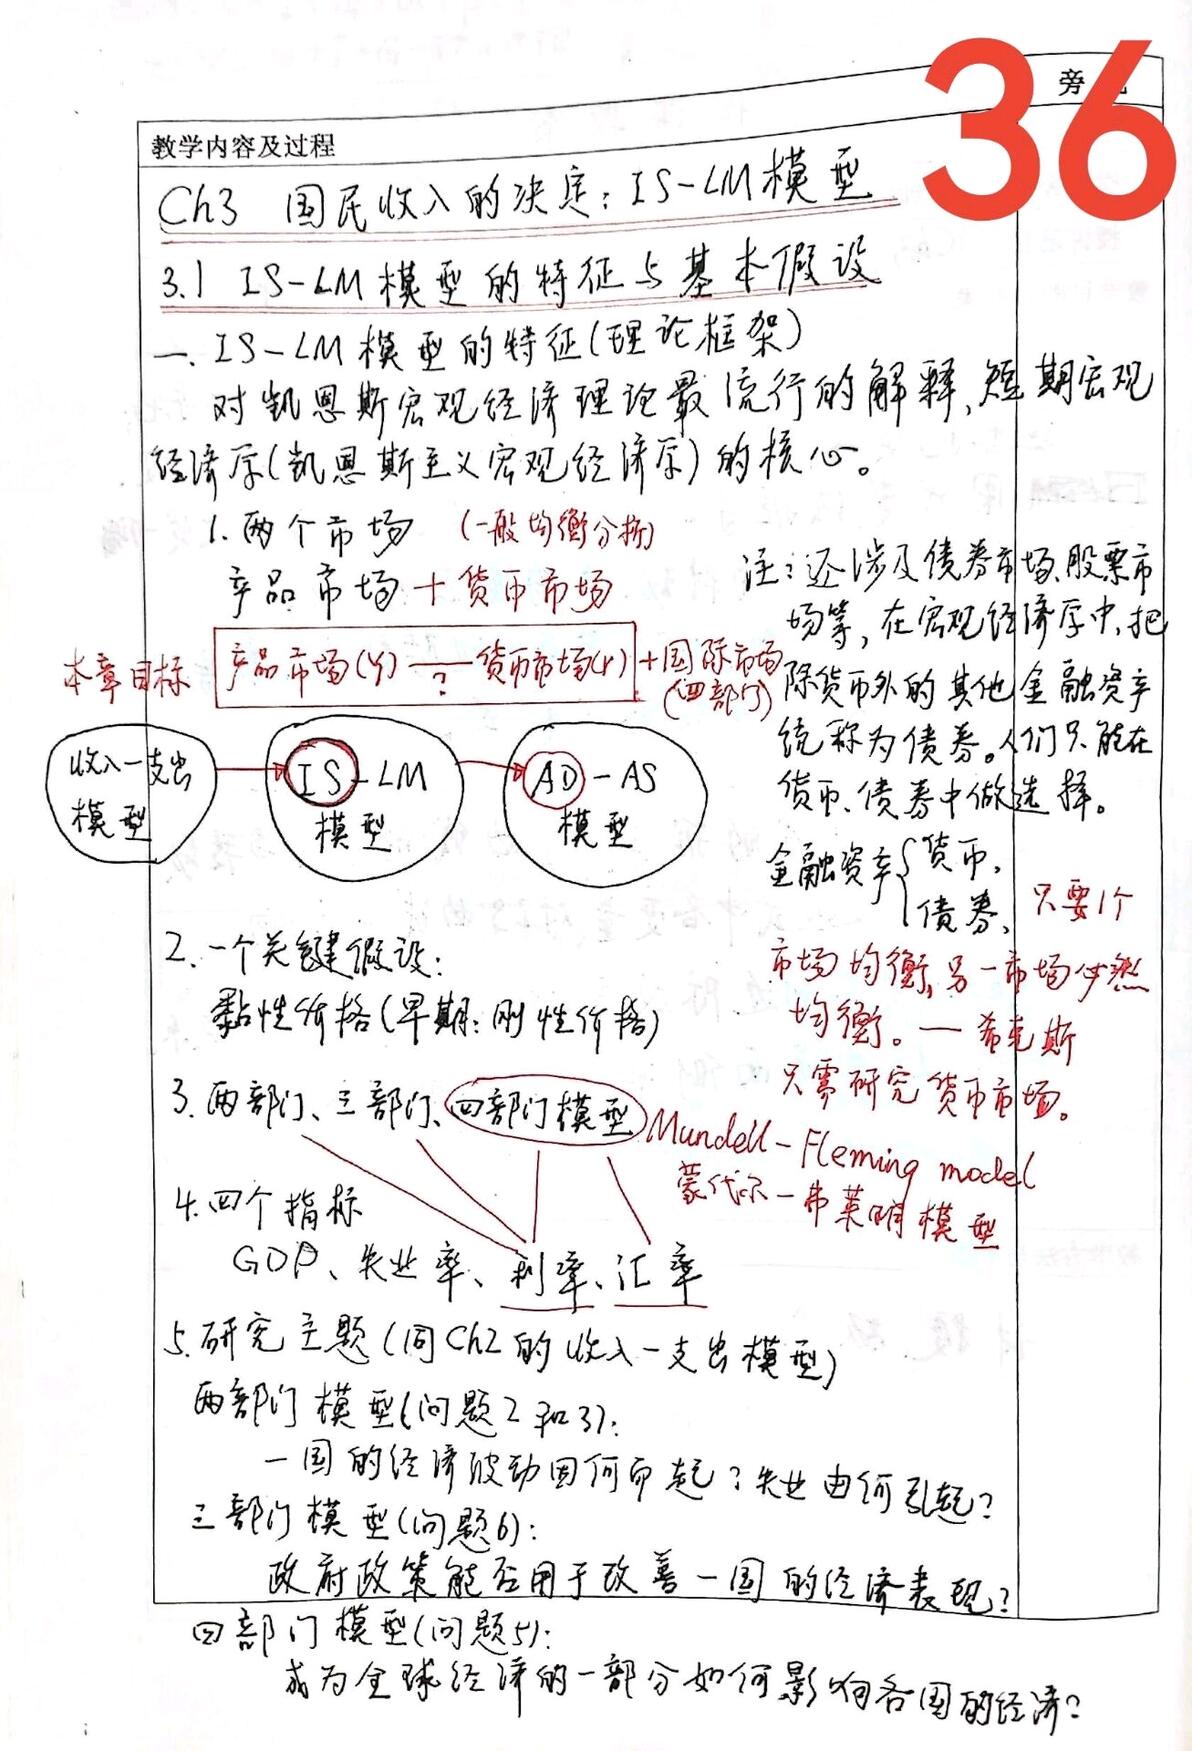 36
旁
教学内容及过程
Ch3 国民收入的决定：IS-LM模型
3.1 IS-LM模型的特征与基本假设
一、IS-LM模型的特征(理论框架)
对凯恩斯宏观经济理论最流行的解释，短期宏观
经济学(凯恩斯主义宏观经济学)的核心。
1. 两个市场 (一般均衡分析)
产品市场+货币市场
本章目标 产品市场(Y)——货币市场(r) +国际市场
? (四部门)
收入-支出
模型
IS-LM
模型
AD-AS
模型
注：还涉及债券市场、股票市
场等，在宏观经济学中，把
除货币外的其他金融资产
统称为债券。人们只能在
货币、债券中做选择。
金融资产{货币,
债券、只要1个
市场均衡,另一市场必然
均衡。—希克斯
只需研究货币市场。
2. 一个关键假设:
黏性价格(早期：刚性价格)
3. 两部门、三部门、四部门模型 Mundell-Fleming model
蒙代尔-弗莱明模型
4. 四个指标
GDP、失业率、利率、汇率
5. 研究主题(同Ch2的收入-支出模型)
两部门模型(问题2和3):
一国的经济波动因何而起？失业由何引起？
三部门模型(问题6):
政府政策能否用于改善一国的经济表现？
四部门模型(问题5):
成为全球经济的一部分如何影响各国的经济？